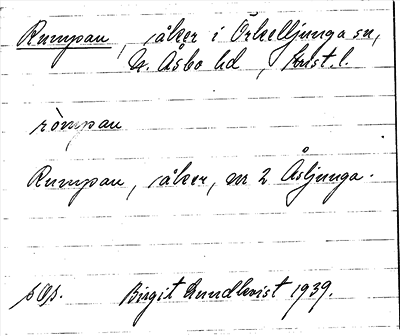 Rumpan, åker i Örkelljunga sn,
N. Åsbo hd, Krist. l.
ròmpan
Rumpan, åker, nr 2 Åsljunga.
Birgit Lundkvist 1939.